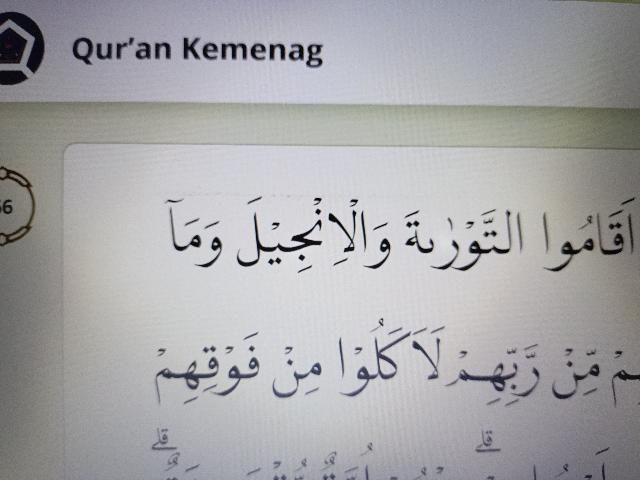 Qur'an Kemenag
66
اَقَامُوا التَّوْرٰىةَ وَالْاِنْجِيْلَ وَمَآ
مِّنْ رَّبِّهِمْ لَاَكَلُوْا مِنْ فَوْقِهِمْ